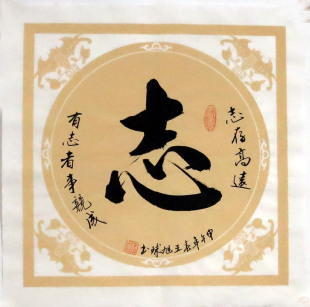 志
志存高遠
有志者事竟成
甲午年春王旭球书